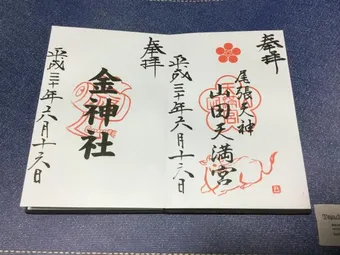 奉拝
尾張天神
山田天満宮
平成三十年六月十六日
奉拝
金神社
平成三十年六月十六日